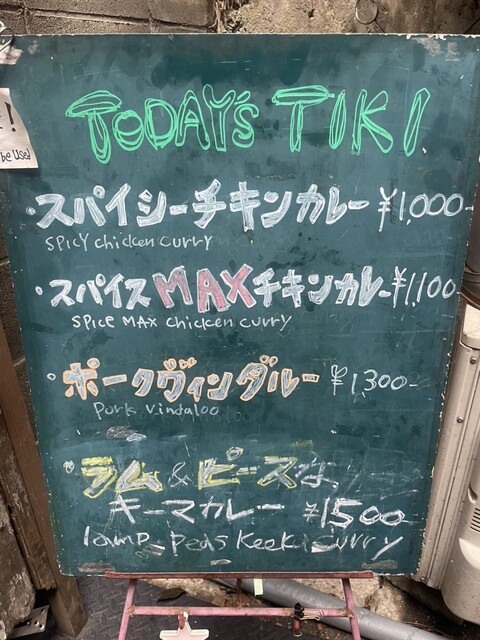 TODAY's TIKI
・スパイシーチキンカレー ¥1,000-
spicy chicken curry
・スパイスMAXチキンカレー ¥1,100
spice MAX chicken curry
・ポークヴィンダルー ¥1,300-
Pork vindaloo
・ラム&ピースな
キーマカレー ¥1500
lamp. peas keeka curry
!
be used